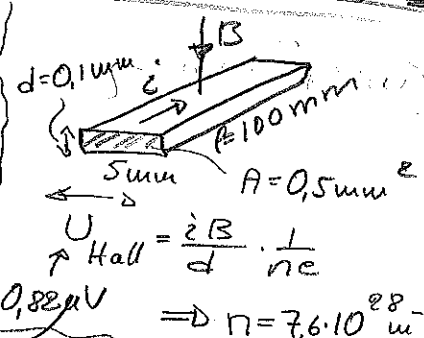 B
d=0,1mm
i
l=100mm
5mm
A=0,5mm²
U_Hall = iB/d · 1/ne
0,82µV
⇒ n=7,6·10²⁸ m⁻